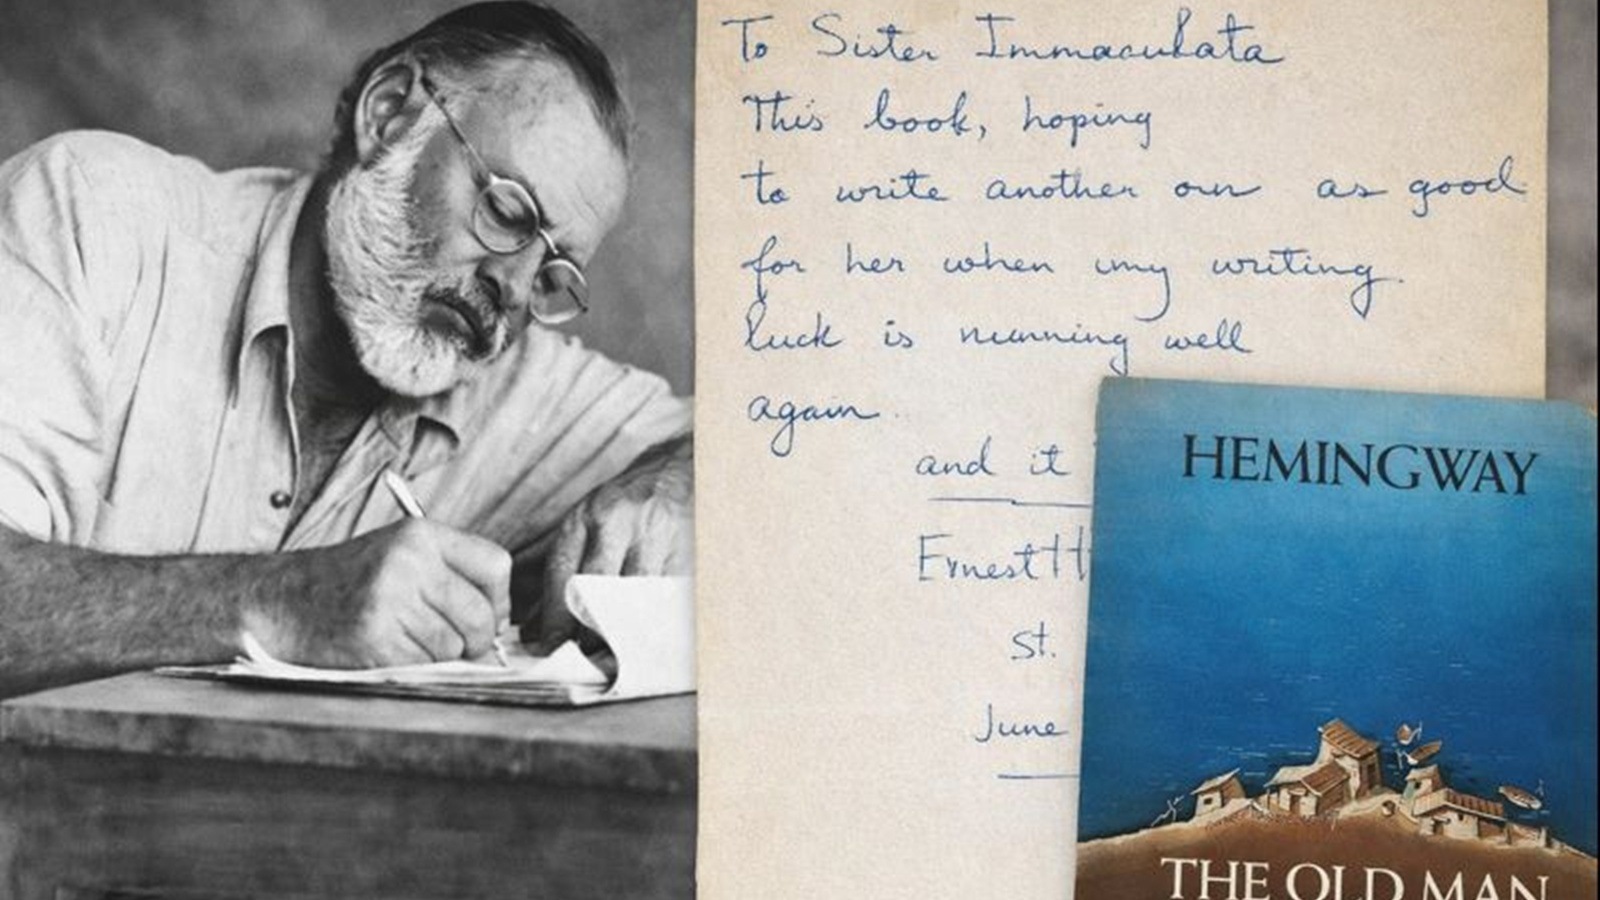 To Sister Immaculata
This book, hoping
to write another as good
for her when my writing
luck is running well
again.
and it
Ernest H
St.
June
HEMINGWAY
THE OLD MAN